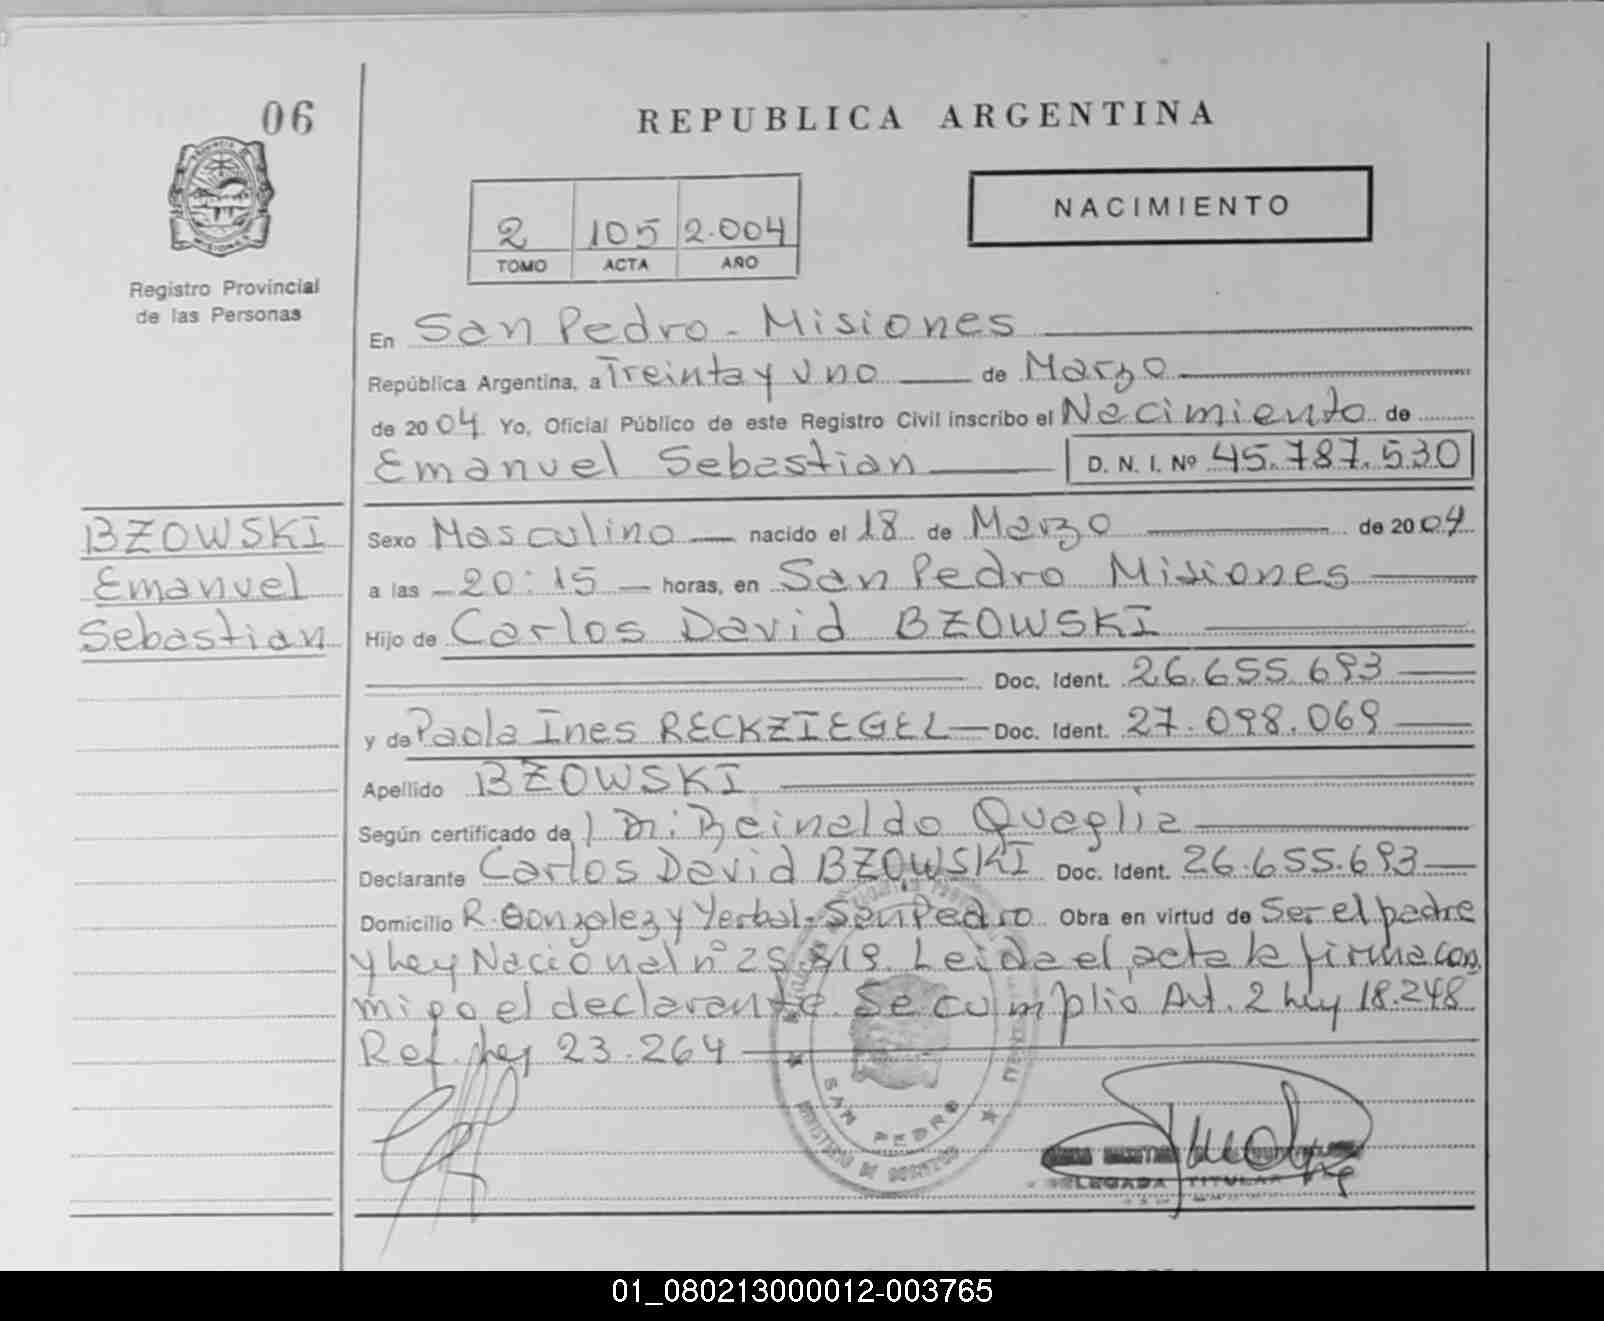 06
REPUBLICA ARGENTINA
NACIMIENTO
2 105 2.004
TOMO ACTA AÑO
Registro Provincial
de las Personas
En San Pedro - Misiones
República Argentina, a Treinta y uno de Marzo
de 2004 Yo, Oficial Público de este Registro Civil inscribo el Nacimiento de
Emanuel Sebastian D. N. I. Nº 45.787.530
BZOWSKI
Emanuel
Sebastian
Sexo Masculino nacido el 18 de Marzo de 2004
a las 20:15 horas, en San Pedro Misiones
Hijo de Carlos David BZOWSKI
Doc. Ident. 26.655.693
y de Paola Ines RECKZIEGEL Doc. Ident. 27.098.069
Apellido BZOWSKI
Según certificado de Dr. Reinaldo Quaglia
Declarante Carlos David BZOWSKI Doc. Ident. 26.655.693
Domicilio R. Gonzalez y Yerbal - San Pedro Obra en virtud de Ser el padre
y Ley Nacional nº 25.819. Leida el acta la firma con
migo el declarante. Se cumplió Art. 2 Ley 18.248
Ref. Ley 23.264
SAN PEDRO
MINISTERIO DE GOBIERNO
DELEGADA TITULAR
01_080213000012-003765